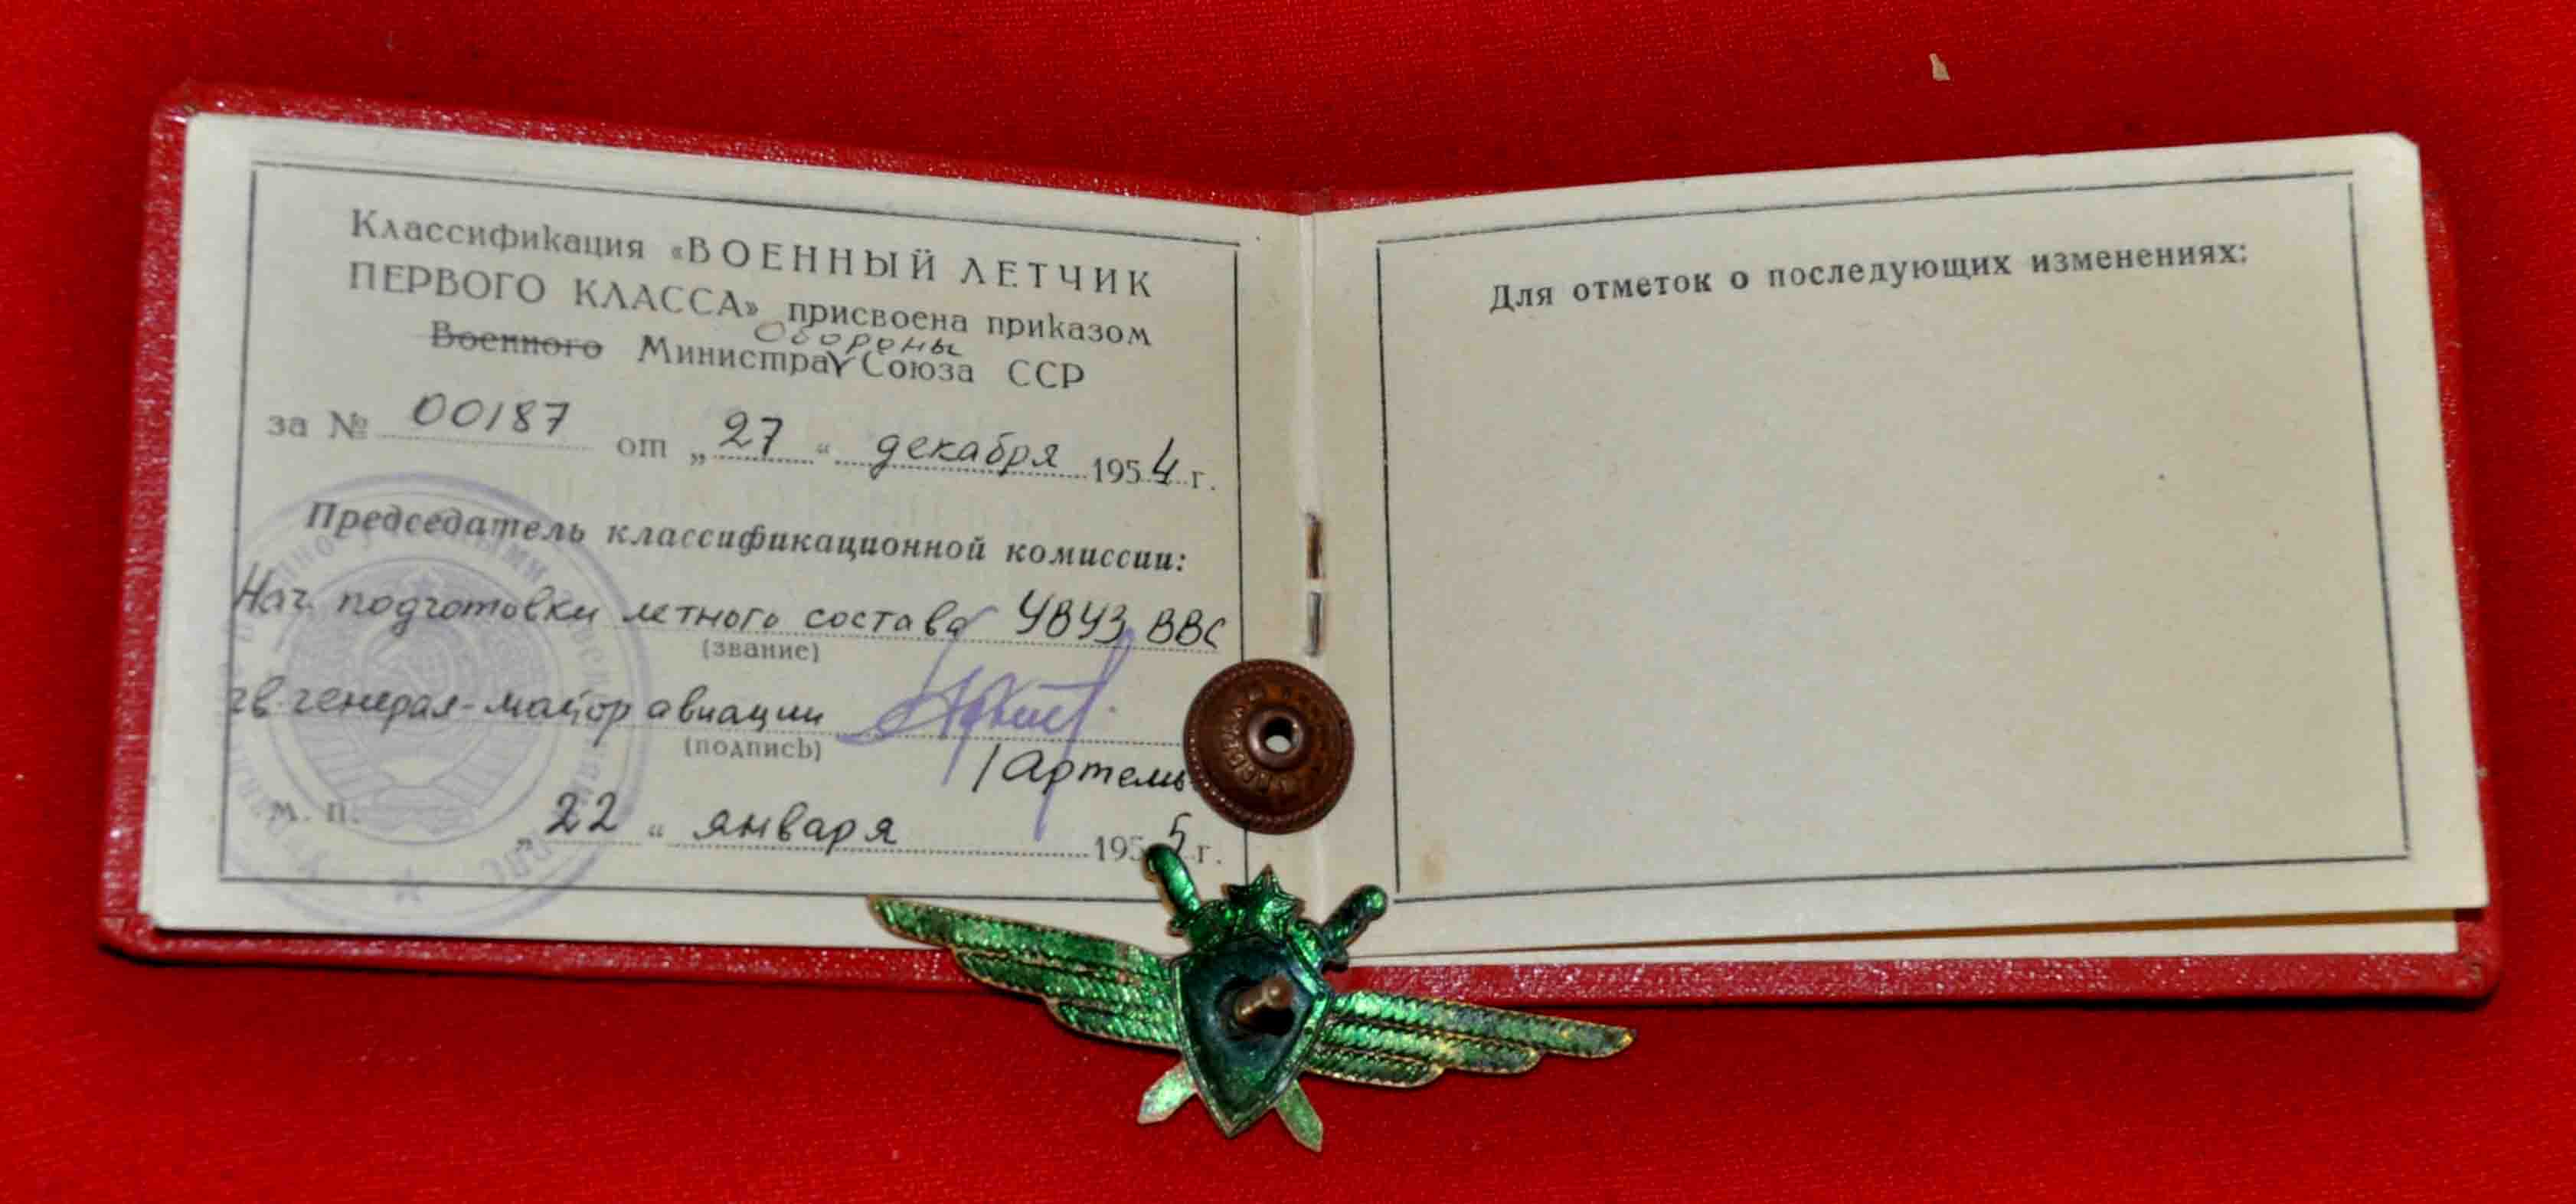 Классификация «ВОЕННЫЙ ЛЕТЧИК
ПЕРВОГО КЛАССА» присвоена приказом
Обороны
Военного Министра Союза ССР
за № 00187 от „27“ декабря 1954 г.
Председатель классификационной комиссии:
Нач. подготовки летного состава УВУЗ ВВС
(звание)
гв. генерал-майор авиации
(подпись)
м. п.
„22“ января 1955 г.
Для отметок о последующих изменениях: